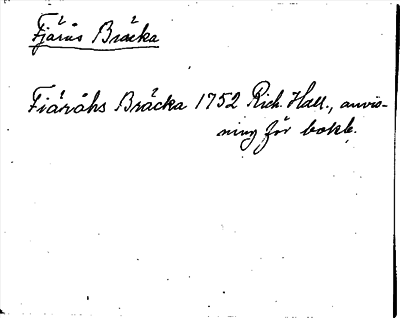 Fjärås Bräcka
Fiäråhs Bräcka 1752 Rich. Hall., anvis-
ning för bokb.